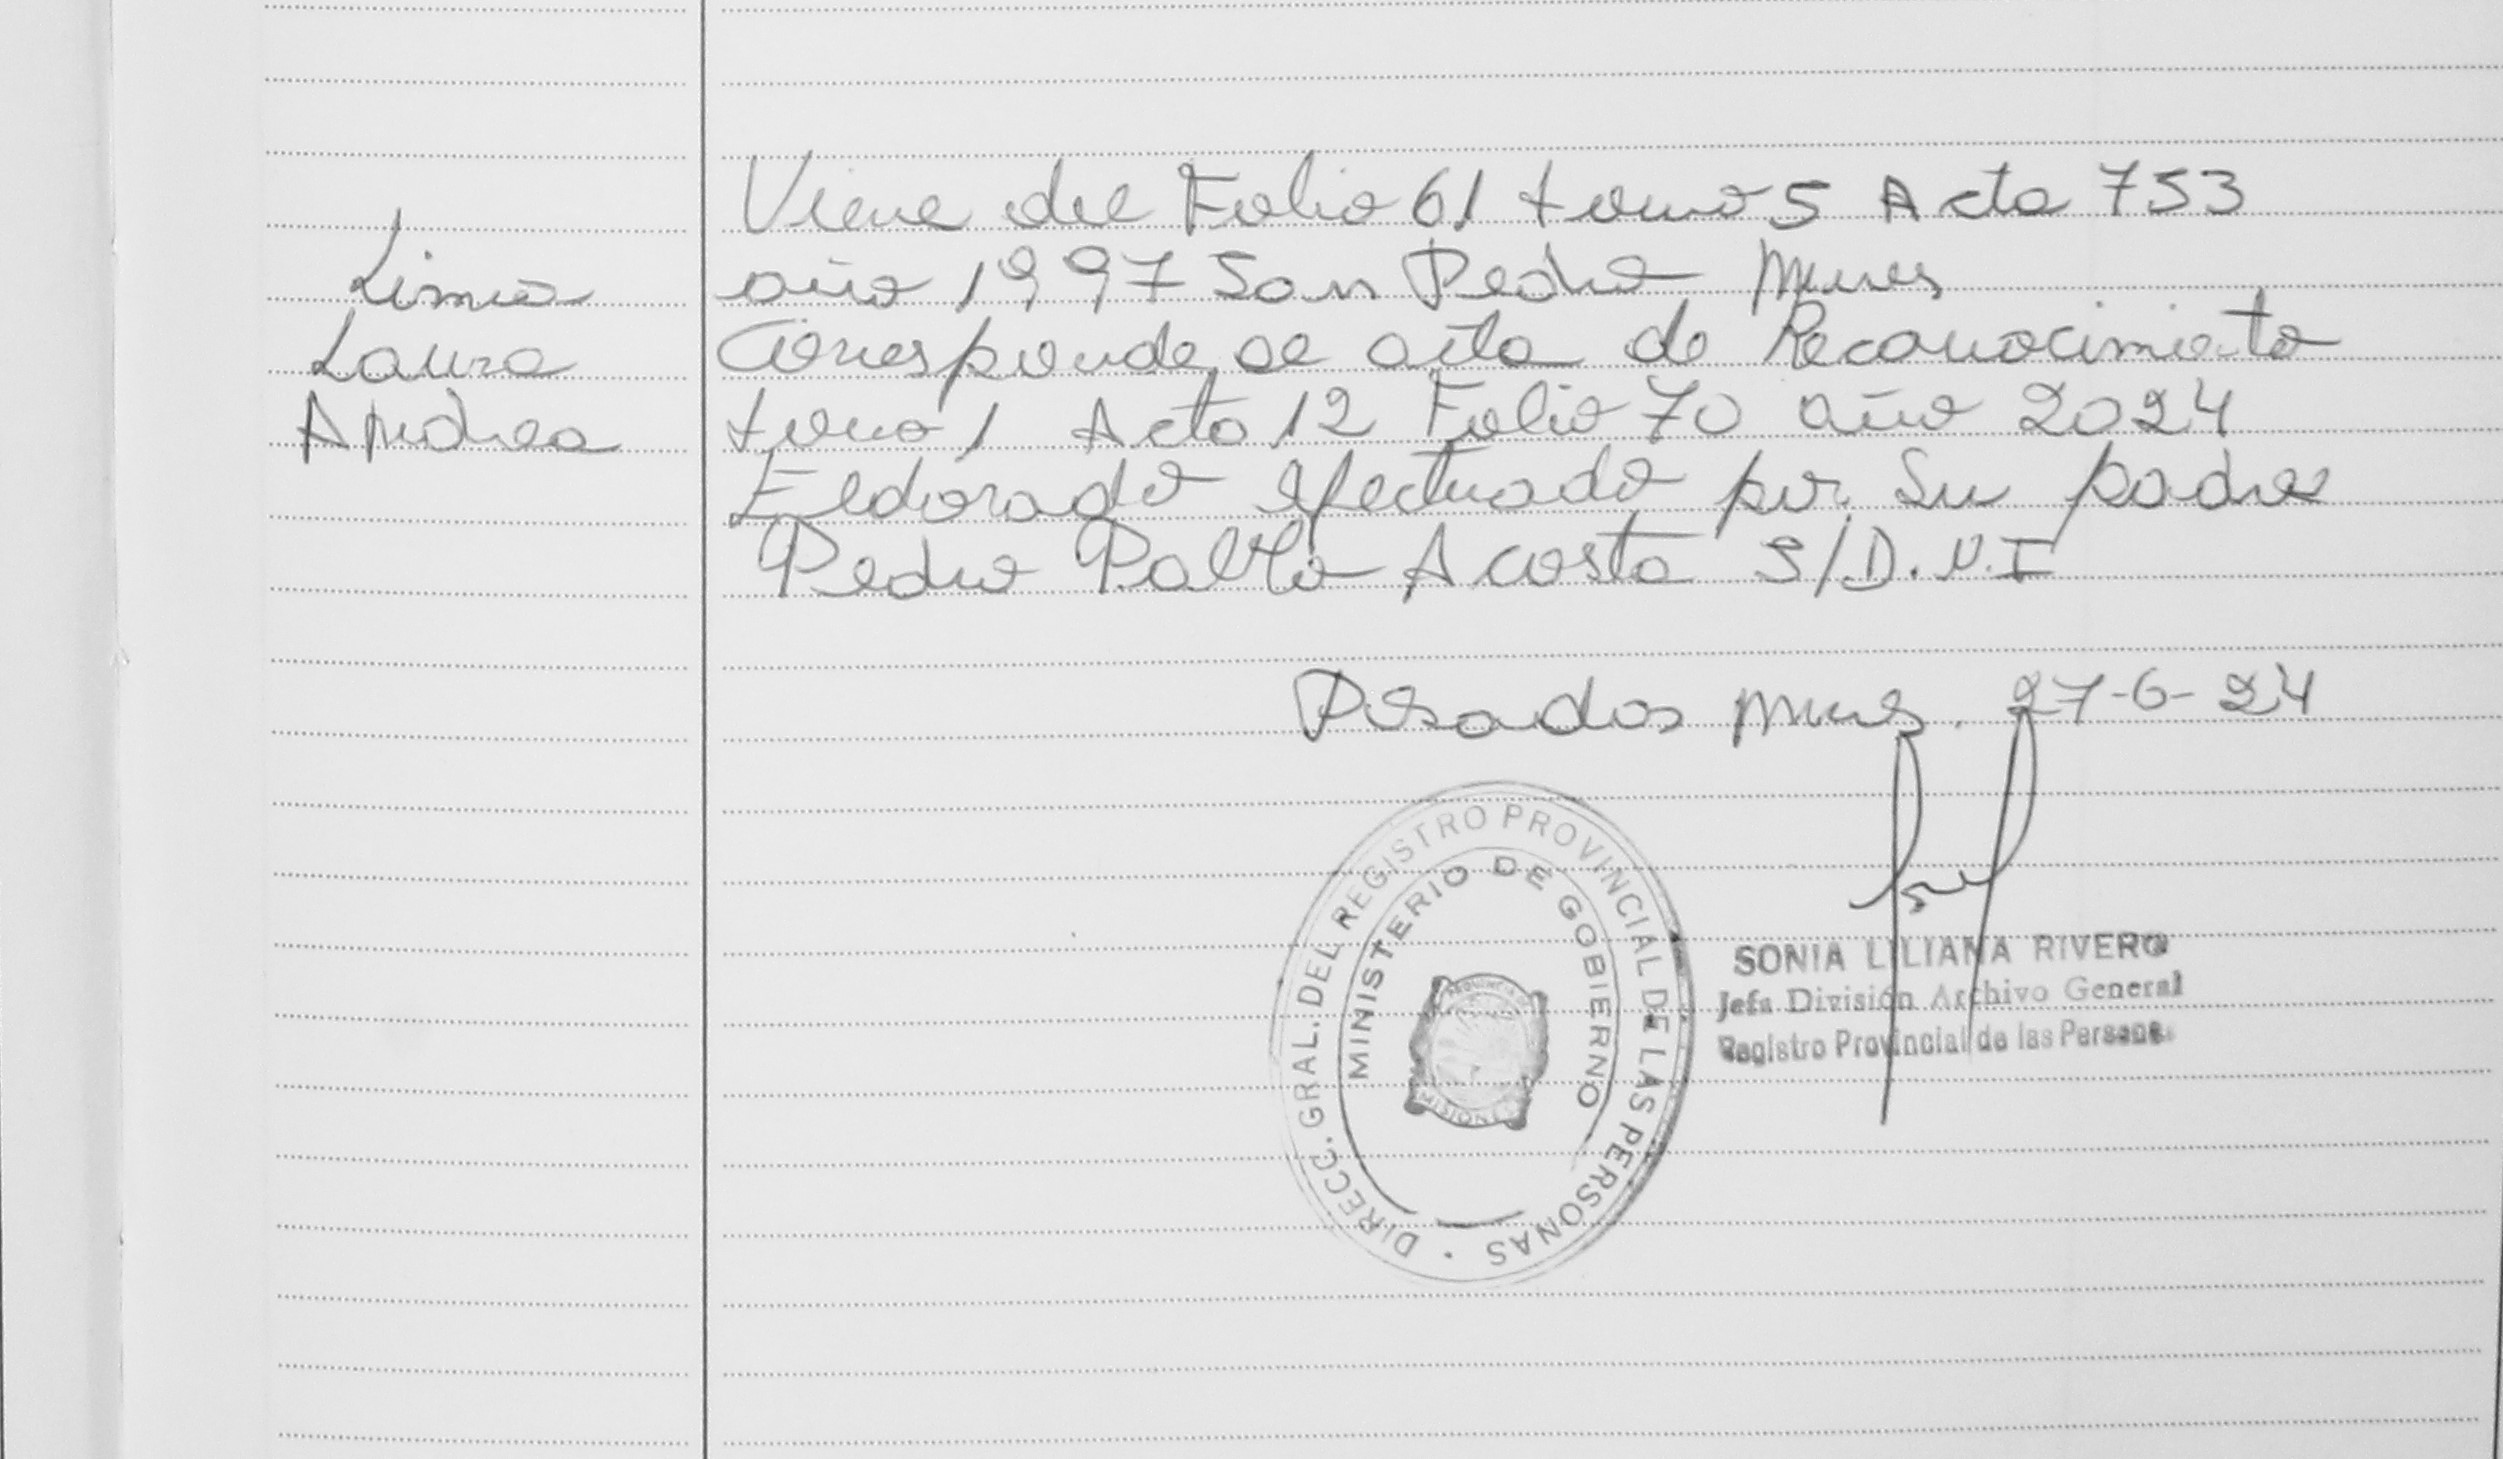 Lima
Laura
Andrea
Viene del Folio 61 tomo 5 Acta 753
año 1997 San Pedro Mnes
Corresponde al acta de Reconocimiento
tomo 1 Acta 12 Folio 70 año 2024
Eldorado efectuado por su padre
Pedro Pablo Acosta S/D.N.I
Posadas Mnes. 27-6-24
DIRECC. GRAL. DEL REGISTRO PROVINCIAL DE LAS PERSONAS
MINISTERIO DE GOBIERNO
PROVINCIA DE
MISIONES
SONIA LILIANA RIVERO
Jefa División Archivo General
Registro Provincial de las Personas